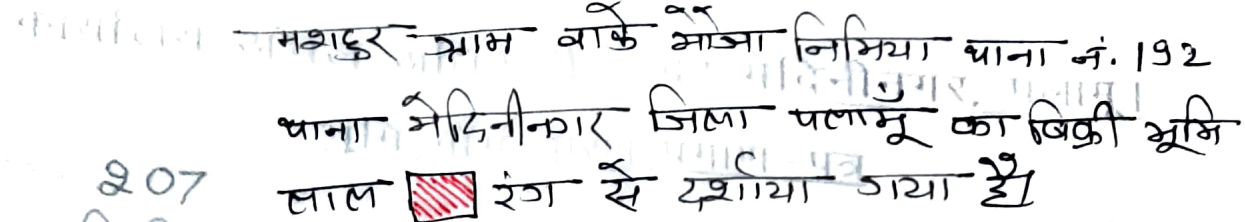 मशहुर ग्राम वाके मौजा निमिया थाना नं. 192
थाना मेदिनीनगर जिला पलामूँ का बिक्री भूमि
207 लाल रंग से दर्शाया गया है।